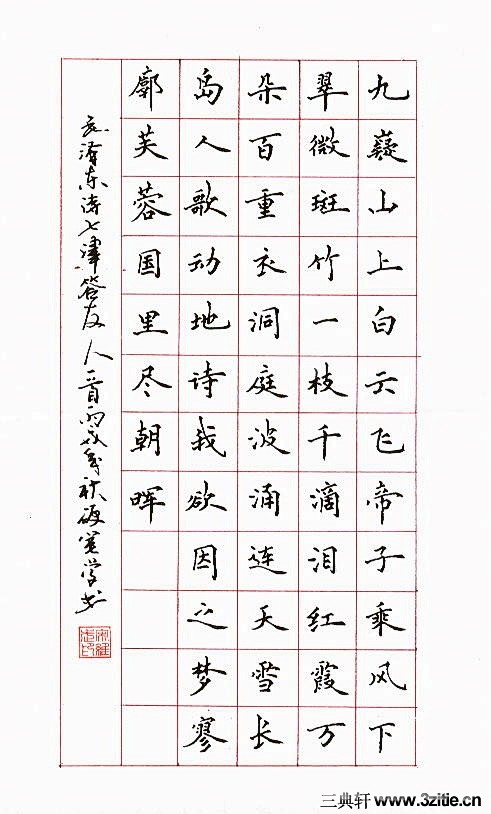 九嶷山上白云飞帝子乘风下
翠微斑竹一枝千滴泪红霞万
朵百重衣洞庭波涌连天雪长
岛人歌动地诗我欲因之梦寥
廓芙蓉国里尽朝晖
毛泽东诗七律答友人一首丙戌年秋学书
三典轩 www.3zitie.cn